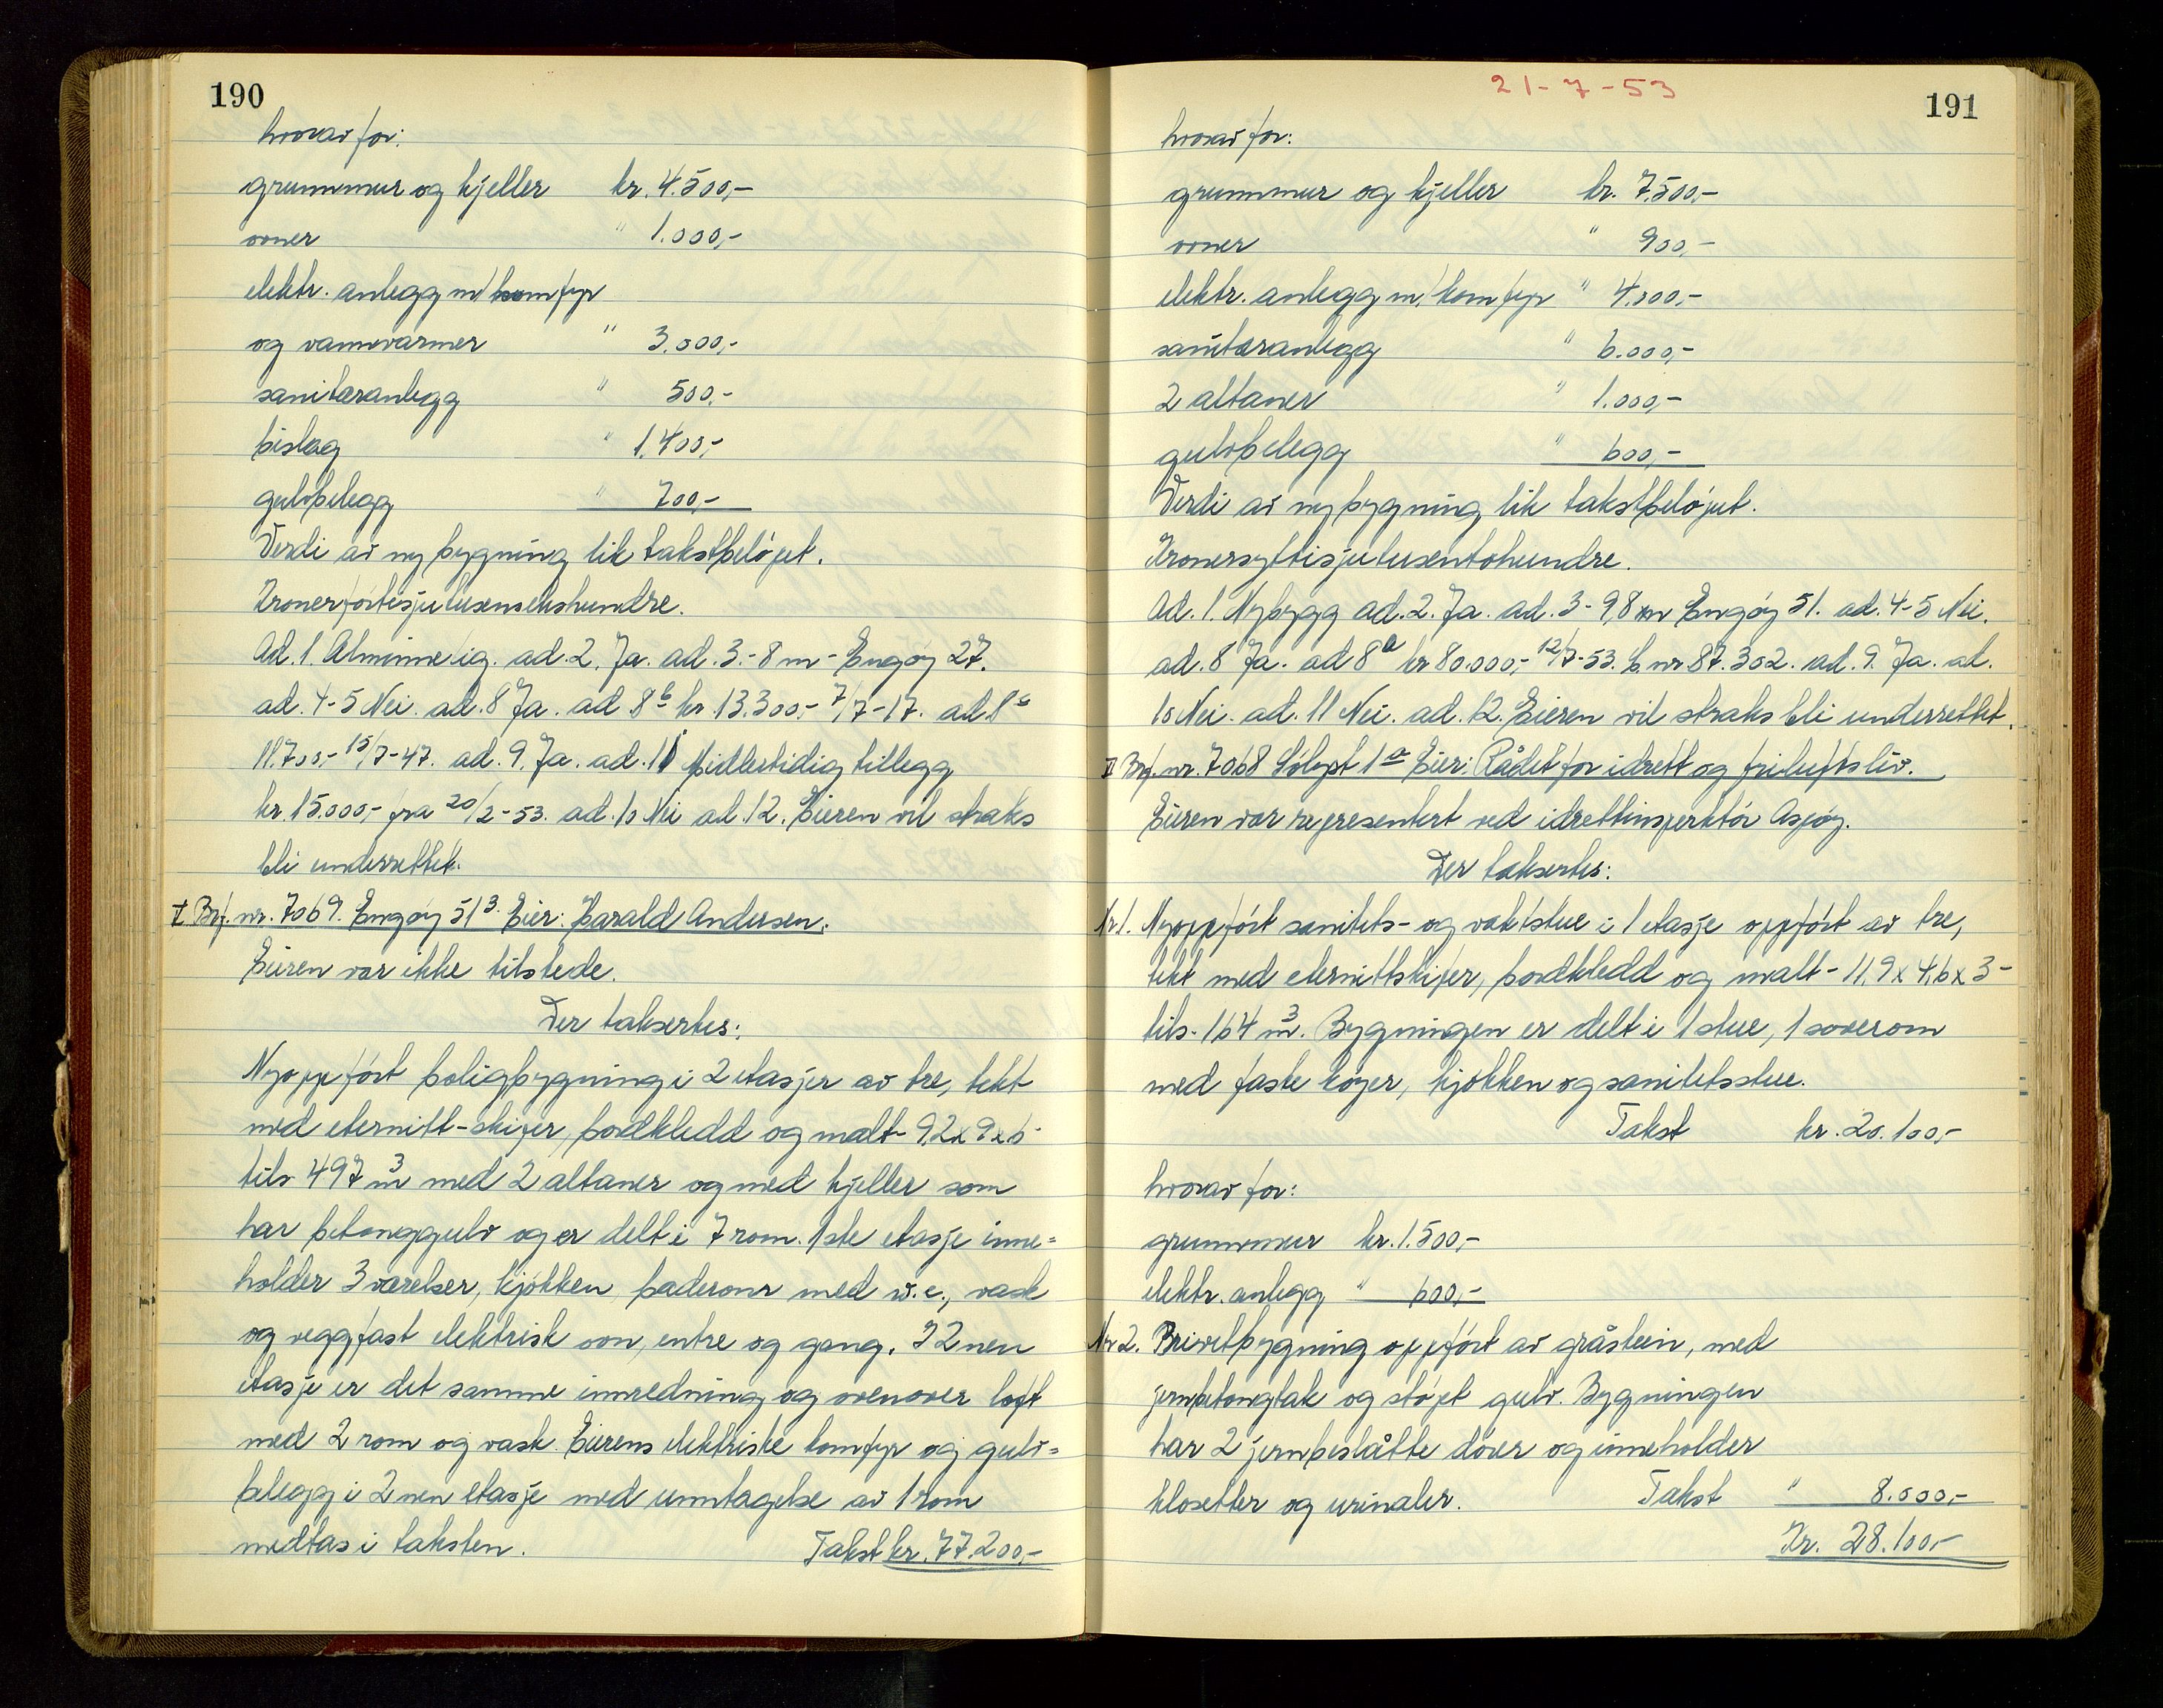 190
hvorav for:
grunnmur og kjeller kr. 4.500,-
ovner " 1.000,-
elektr. anlegg m/komfyr
og vannvarmer " 3.000,-
sanitæranlegg " 500,-
bislag " 1.400,-
gulvbelegg " 700,-
Verdi av ny bygning lik takstbeløpet.
Kronerførtisjutusensekshundre.
Ad. 1. Alminnelig. ad. 2. Ja. ad. 3.- 8 m - Engøy 27.
ad. 4-5 Nei. ad. 8 Ja. ad 8b kr. 13.300,- 7/7-17. ad. 8c
11.700,- 15/7-47. ad. 9. Ja. ad. 11 Midlertidig tillegg
kr. 15.000,- fra 20/2-53. ad. 10 Nei ad. 12. Eieren vil straks
bli underrettet.
I Brf. nr. 7069. Engøy 51³. Eier: Harald Andersen.
Eieren var ikke tilstede.
Der taksertes:
Nyoppført boligbygning i 2 etasjer av tre, tekt
med eternitt-skifer, bordkledd og malt - 9,2 x 9 x 6 -
tils 497 m³ med 2 altaner og med kjeller som
har betonggulv og er delt i 7 rom. 1ste etasje inne=
holder 3 værelser, kjøkken, baderom med w.c., vask
og veggfast elektrisk ovn, entre og gang. I 2nen
etasje er det samme innredning og ovenover loft
med 2 rom og vask. Eierens elektriske komfyr og gulv=
belegg i 2nen etasje med unntagelse av 1 rom
medtas i taksten. Takst kr. 77.200,-
21-7-53
191
hvorav for:
grunnmur og kjeller kr. 7.500,-
ovner " 900,-
elektr. anlegg m/komfyr " 4.000,-
sanitæranlegg " 6.000,-
2 altaner " 1.000,-
gulvbelegg " 600,-
Verdi av ny bygning lik takstbeløpet.
Kronersyttisjutusentohundre.
Ad. 1. Nybygg ad. 2. Ja. ad. 3 - 9,8 m Engøy 51. ad. 4-5 Nei.
ad. 8 Ja. ad 8a kr 80.000,- 12/7-53. b nr 87.302. ad. 9. Ja. ad.
10 Nei. ad. 11 Nei. ad. 12. Eieren vil straks bli underrettet.
II Brf. nr. 7068 Sølyst 1a Eier: Rådet for idrett og friluftsliv.
Eieren var representert ved idrettinspektør Aspøy.
Der taksertes:
Nr 1. Nyoppført sanitets- og vaktstue i 1 etasje oppført av tre,
tekt med eternittskifer, bordkledd og malt - 11,9 x 4,6 x 3 -
tils. 164 m³. Bygningen er delt i 1 stue, 1 soverom
med faste køyer, kjøkken og sanitetsstue.
Takst kr. 20.100,-
hvorav for:
grunnmur kr. 1.500,-
elektr. anlegg " 600,-
Nr 2. Privetbygning oppført av gråstein, med
jernbetongtak og støpt gulv. Bygningen
har 2 jernbeslåtte dører og inneholder
klosetter og urinaler. Takst " 8.000,-
Kr. 28.100,-